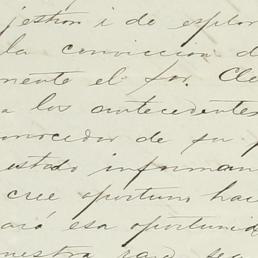 jestion i de esplor
la conviccion d
mente el Sor. Cle
a los antecedentes
onocedor de su p
estado informan
cree oportuno hac
ará esa oportunid
nuestra